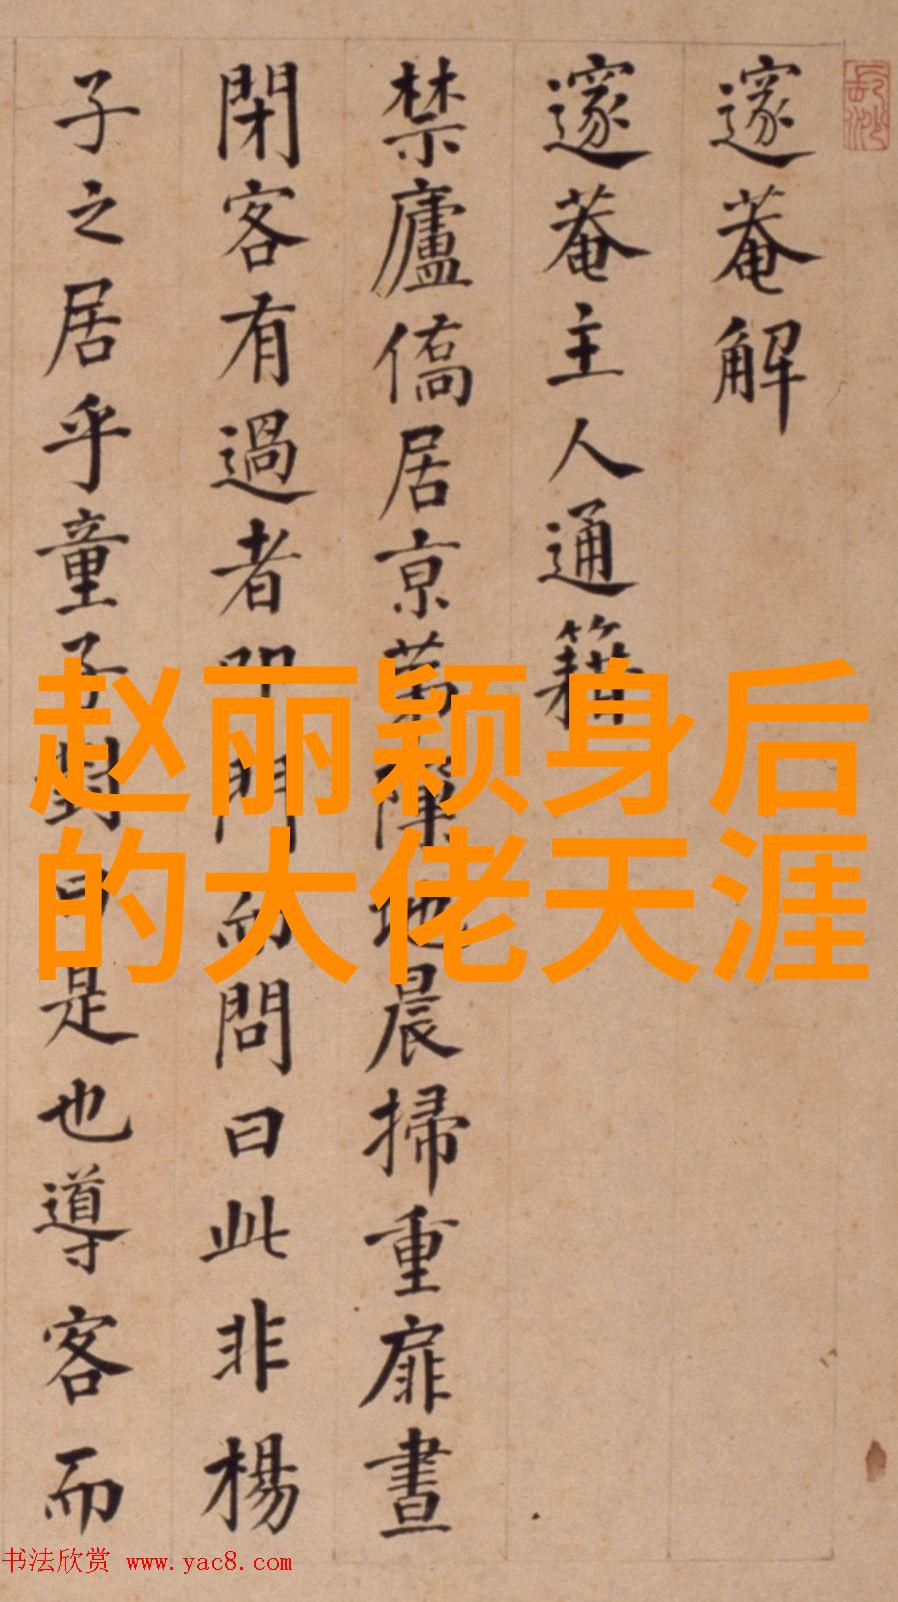 邃菴解
邃菴主人通籍
禁廬僑居京第陳地晨掃重扉晝
閉客有過者叩門而問曰此非楊
子之居乎童子對曰是也導客而
赵丽颖身后
的大佬天涯
书法欣赏 www.yac8.com